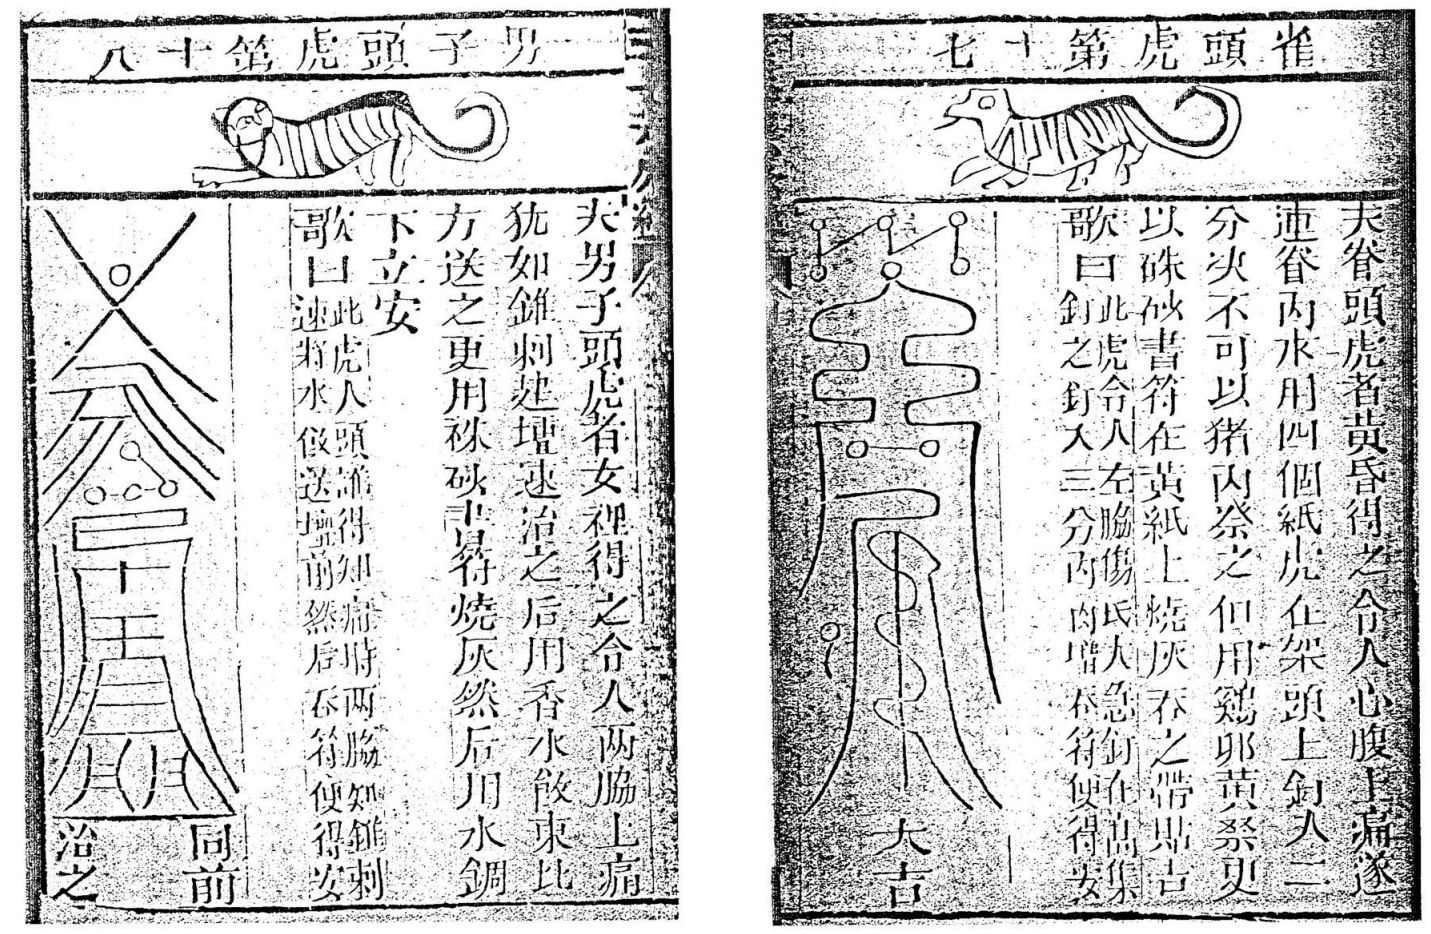 雀頭虎第十七
夫眷頭虎者黄昏得之令人心腹上痛遂
連眷丙水用四個紙虎在架頭上釘入二
分次不可以猪肉祭之但用鷄卵黄祭更
以硃砂書符在黄紙上燒灰吞之帶貼吉
歌曰
此虎令人左脇傷氏大急釘在
釘之釘入三分内肉増吞符便得安
大吉
男子頭虎第十八
夫男子頭虎者女裡得之令人两脇上痛
犹如錐刺起壇速治之后用香水飯東北
方送之更用硃砂書符燒灰然后用水調
下立安
歌曰
此虎人頭誰得知痛時两脇如錐刺
速將水飯送壇前然后吞符便得安
同前
治之